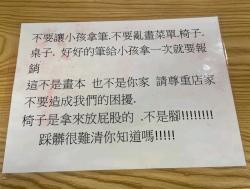 不要讓小孩拿筆.不要亂畫菜單.椅子.
桌子. 好好的筆給小孩拿一次就要報
銷
這不是畫本 也不是你家 請尊重店家
不要造成我們的困擾.
椅子是拿來放屁股的 .不是腳!!!!!!!!!
踩髒很難清你知道嗎!!!!!